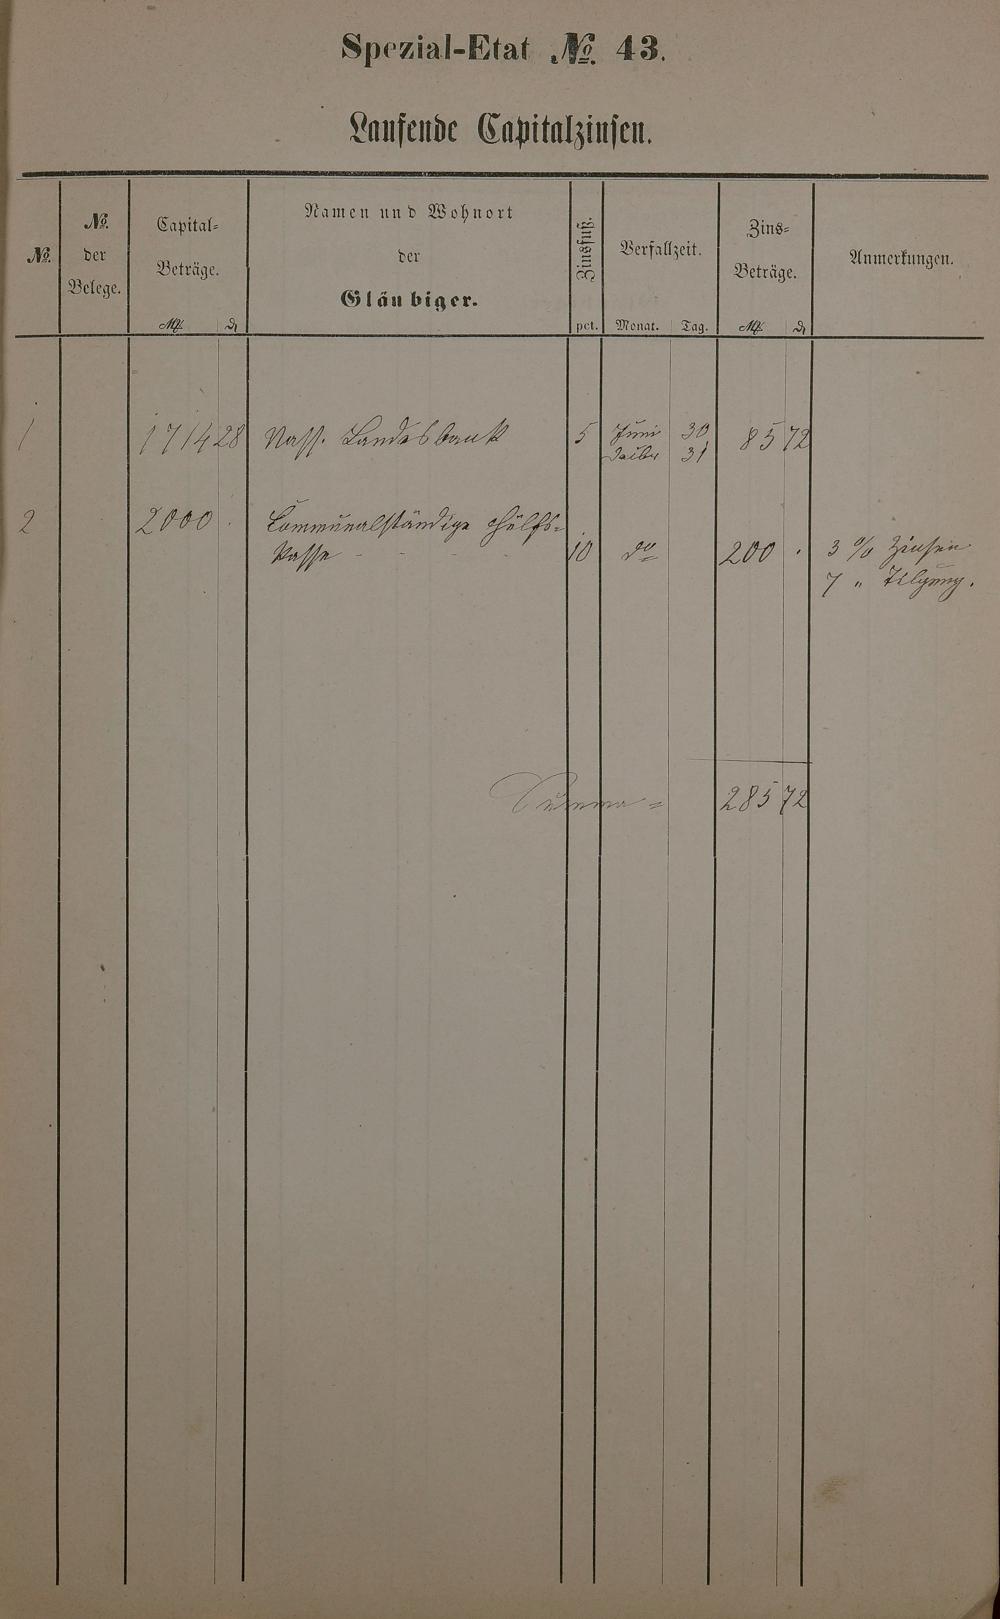 Spezial-Etat № 43.
Laufende Capitalzinsen.
№.
№.
der
Belege.
Capital-
Beträge.
Mk. ₰
Namen und Wohnort
der
Gläubiger.
Zinsfuß.
pct.
Verfallzeit.
Monat. Tag.
Zins-
Beträge.
Mk. ₰
Anmerkungen.
1 1714 28 Nass. Landesbank 5 Juni 30 85 72
31
2 2000 . Communalständige Hülfs-
kasse - - - - 10 do 200 . 3 % Zinsen
7 " Tilgung.
Summa = 285 72